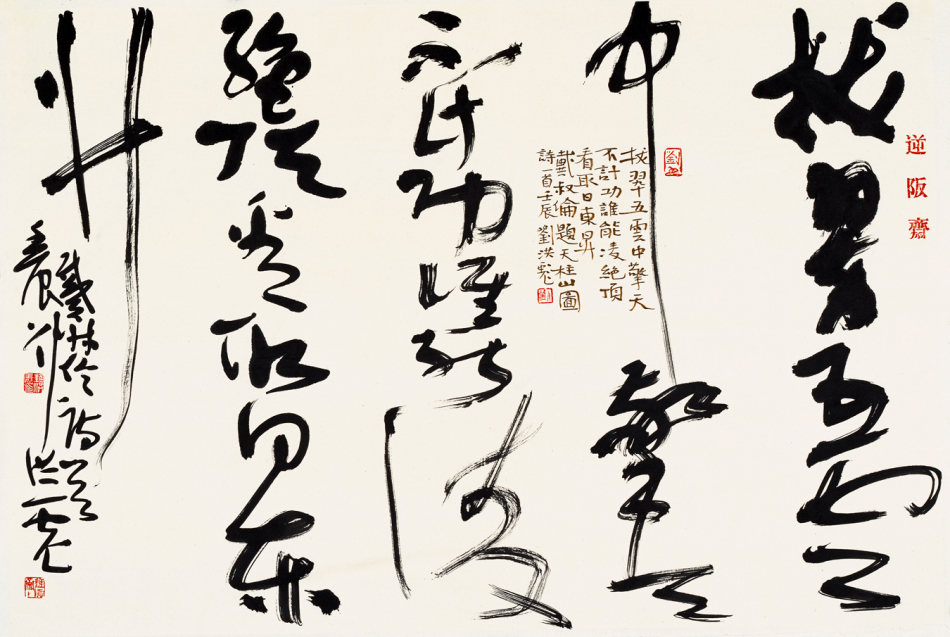 逆阪齋
拔翠五雲
中擎天
拔翠五雲中擎天
不計功誰能凌絕頂
看取日東升
戴叔倫題天柱山圖
詩一首壬辰劉洪彪
不計功誰能凌
絕頂看取日東
升
戴叔倫詩一首
壬辰劉洪彪